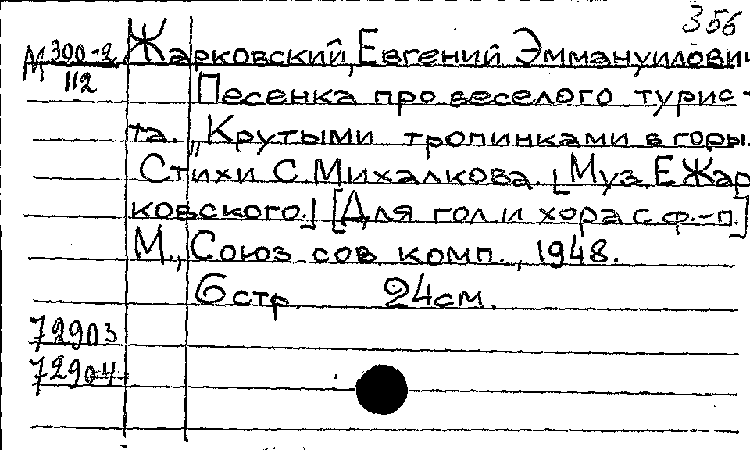 356
М 300-2
112
Жарковский, Евгений Эммануилович
Песенка про веселого турис-
та. „Крутыми тропинками в горы.
Стихи С. Михалкова. [Муз. Е. Жар
ковского.] [Для гол. и хора с ф.-п.]
М., Союз сов комп., 1948.
6 стр 24 см.
72903
72904